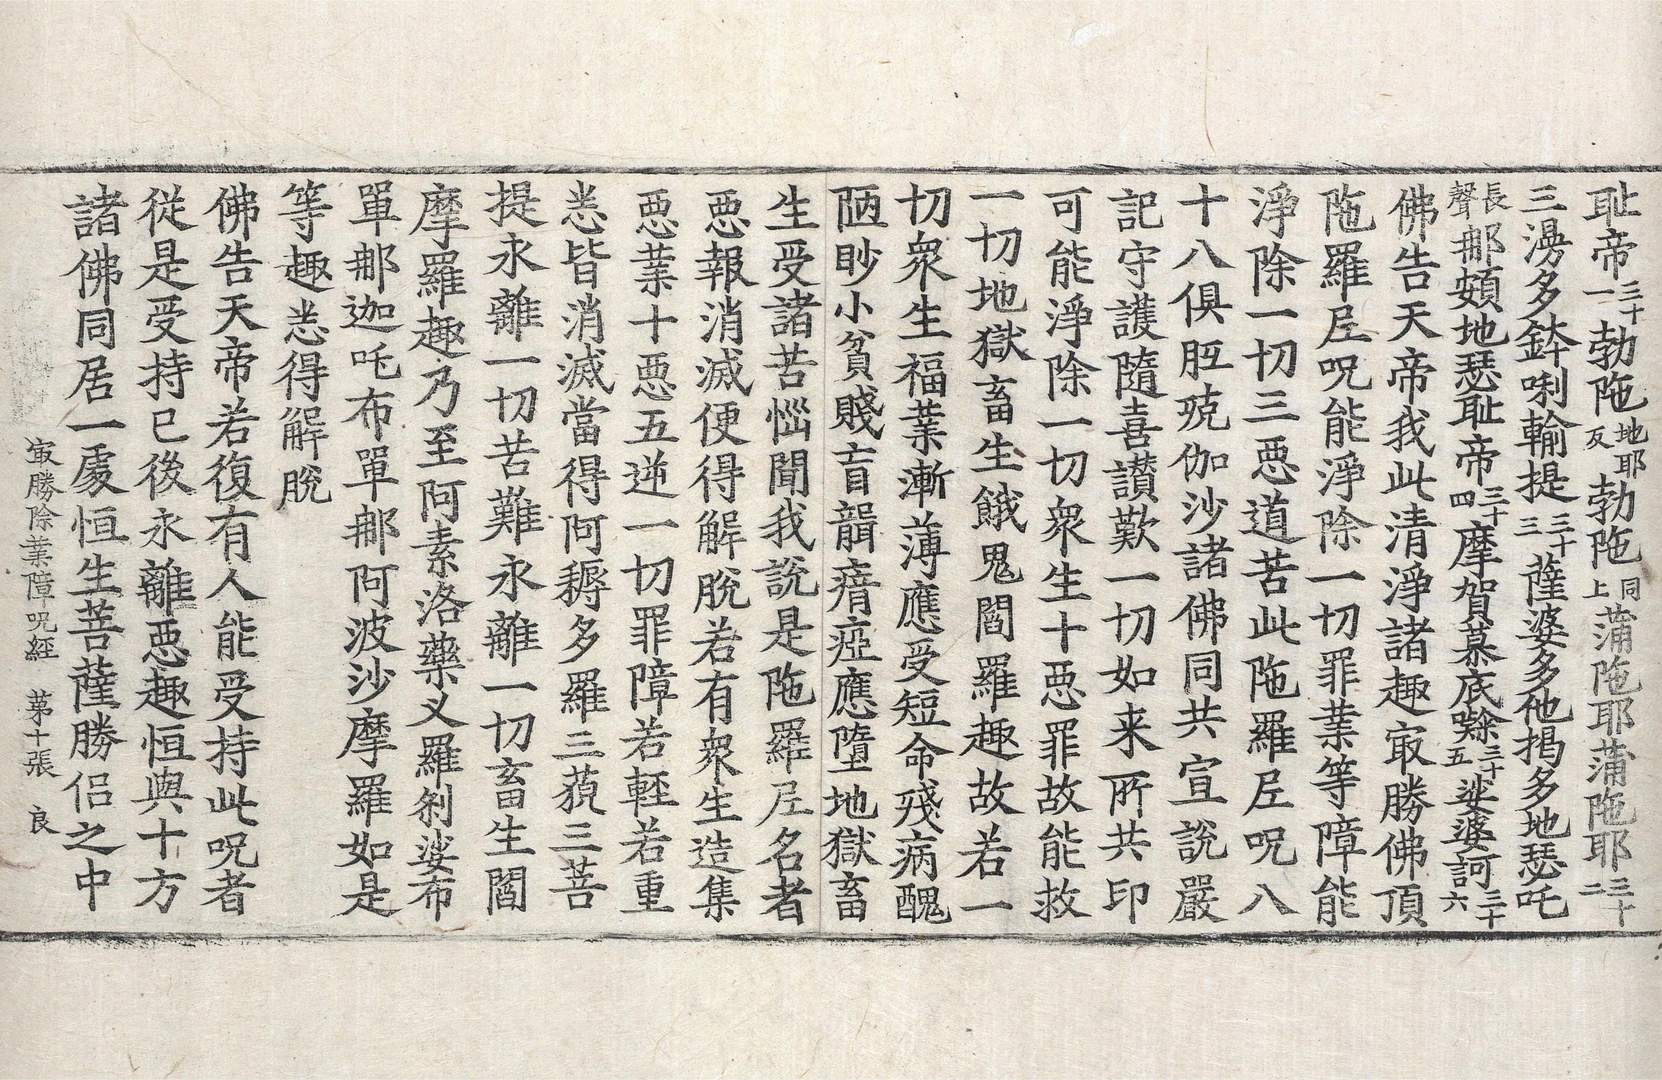 耻帝三十一勃陁地耶反勃陁同上蒲陁耶蒲陁耶三十二
三漫多鉢唎輸提三十三薩婆多他揭多地瑟吒
長聲𨚗頞地瑟耻帝三十四摩賀慕底㗚三十五娑婆訶三十六
佛告天帝我此清淨諸趣㝡勝佛頂
陁羅𡰱呪能淨除一切罪業等障能
淨除一切三惡道苦此陁羅𡰱呪八
十八俱胝殑伽沙諸佛同共宣說嚴
記守護隨喜讃歎一切如来所共印
可能淨除一切衆生十惡罪故能救
一切地獄畜生餓鬼閻羅趣故若一
切衆生福業漸薄應受短命殘病醜
陋眇小貧賤盲聾瘖瘂應墮地獄畜
生受諸苦惱聞我說是陁羅𡰱名者
惡報消滅便得解脫若有衆生造集
惡業十惡五逆一切罪障若輕若重
悉皆消滅當得阿耨多羅三藐三菩
提永離一切苦難永離一切畜生閻
摩羅趣乃至阿素洛藥叉羅剎娑布
單𨚗迦吒布單𨚗阿波沙摩羅如是
等趣悉得解脫
佛告天帝若復有人能受持此呪者
從是受持已後永離惡趣恒與十方
諸佛同居一處恒生菩薩勝侣之中
㝡勝除業障呪經　苐十張　良